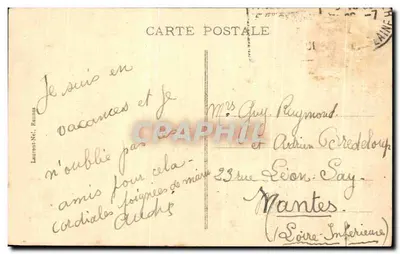 CARTE POSTALE
Je suis en
vacances et je
n'oublie pas les
amis pour cela.
cordiales poignées de main
Mrs Guy Raymond.
et Adrien
23 rue Léon Say.
Nantes.
(Loire Inférieure)
Laurent-Nel, Rennes
CARTHAPOSTALE